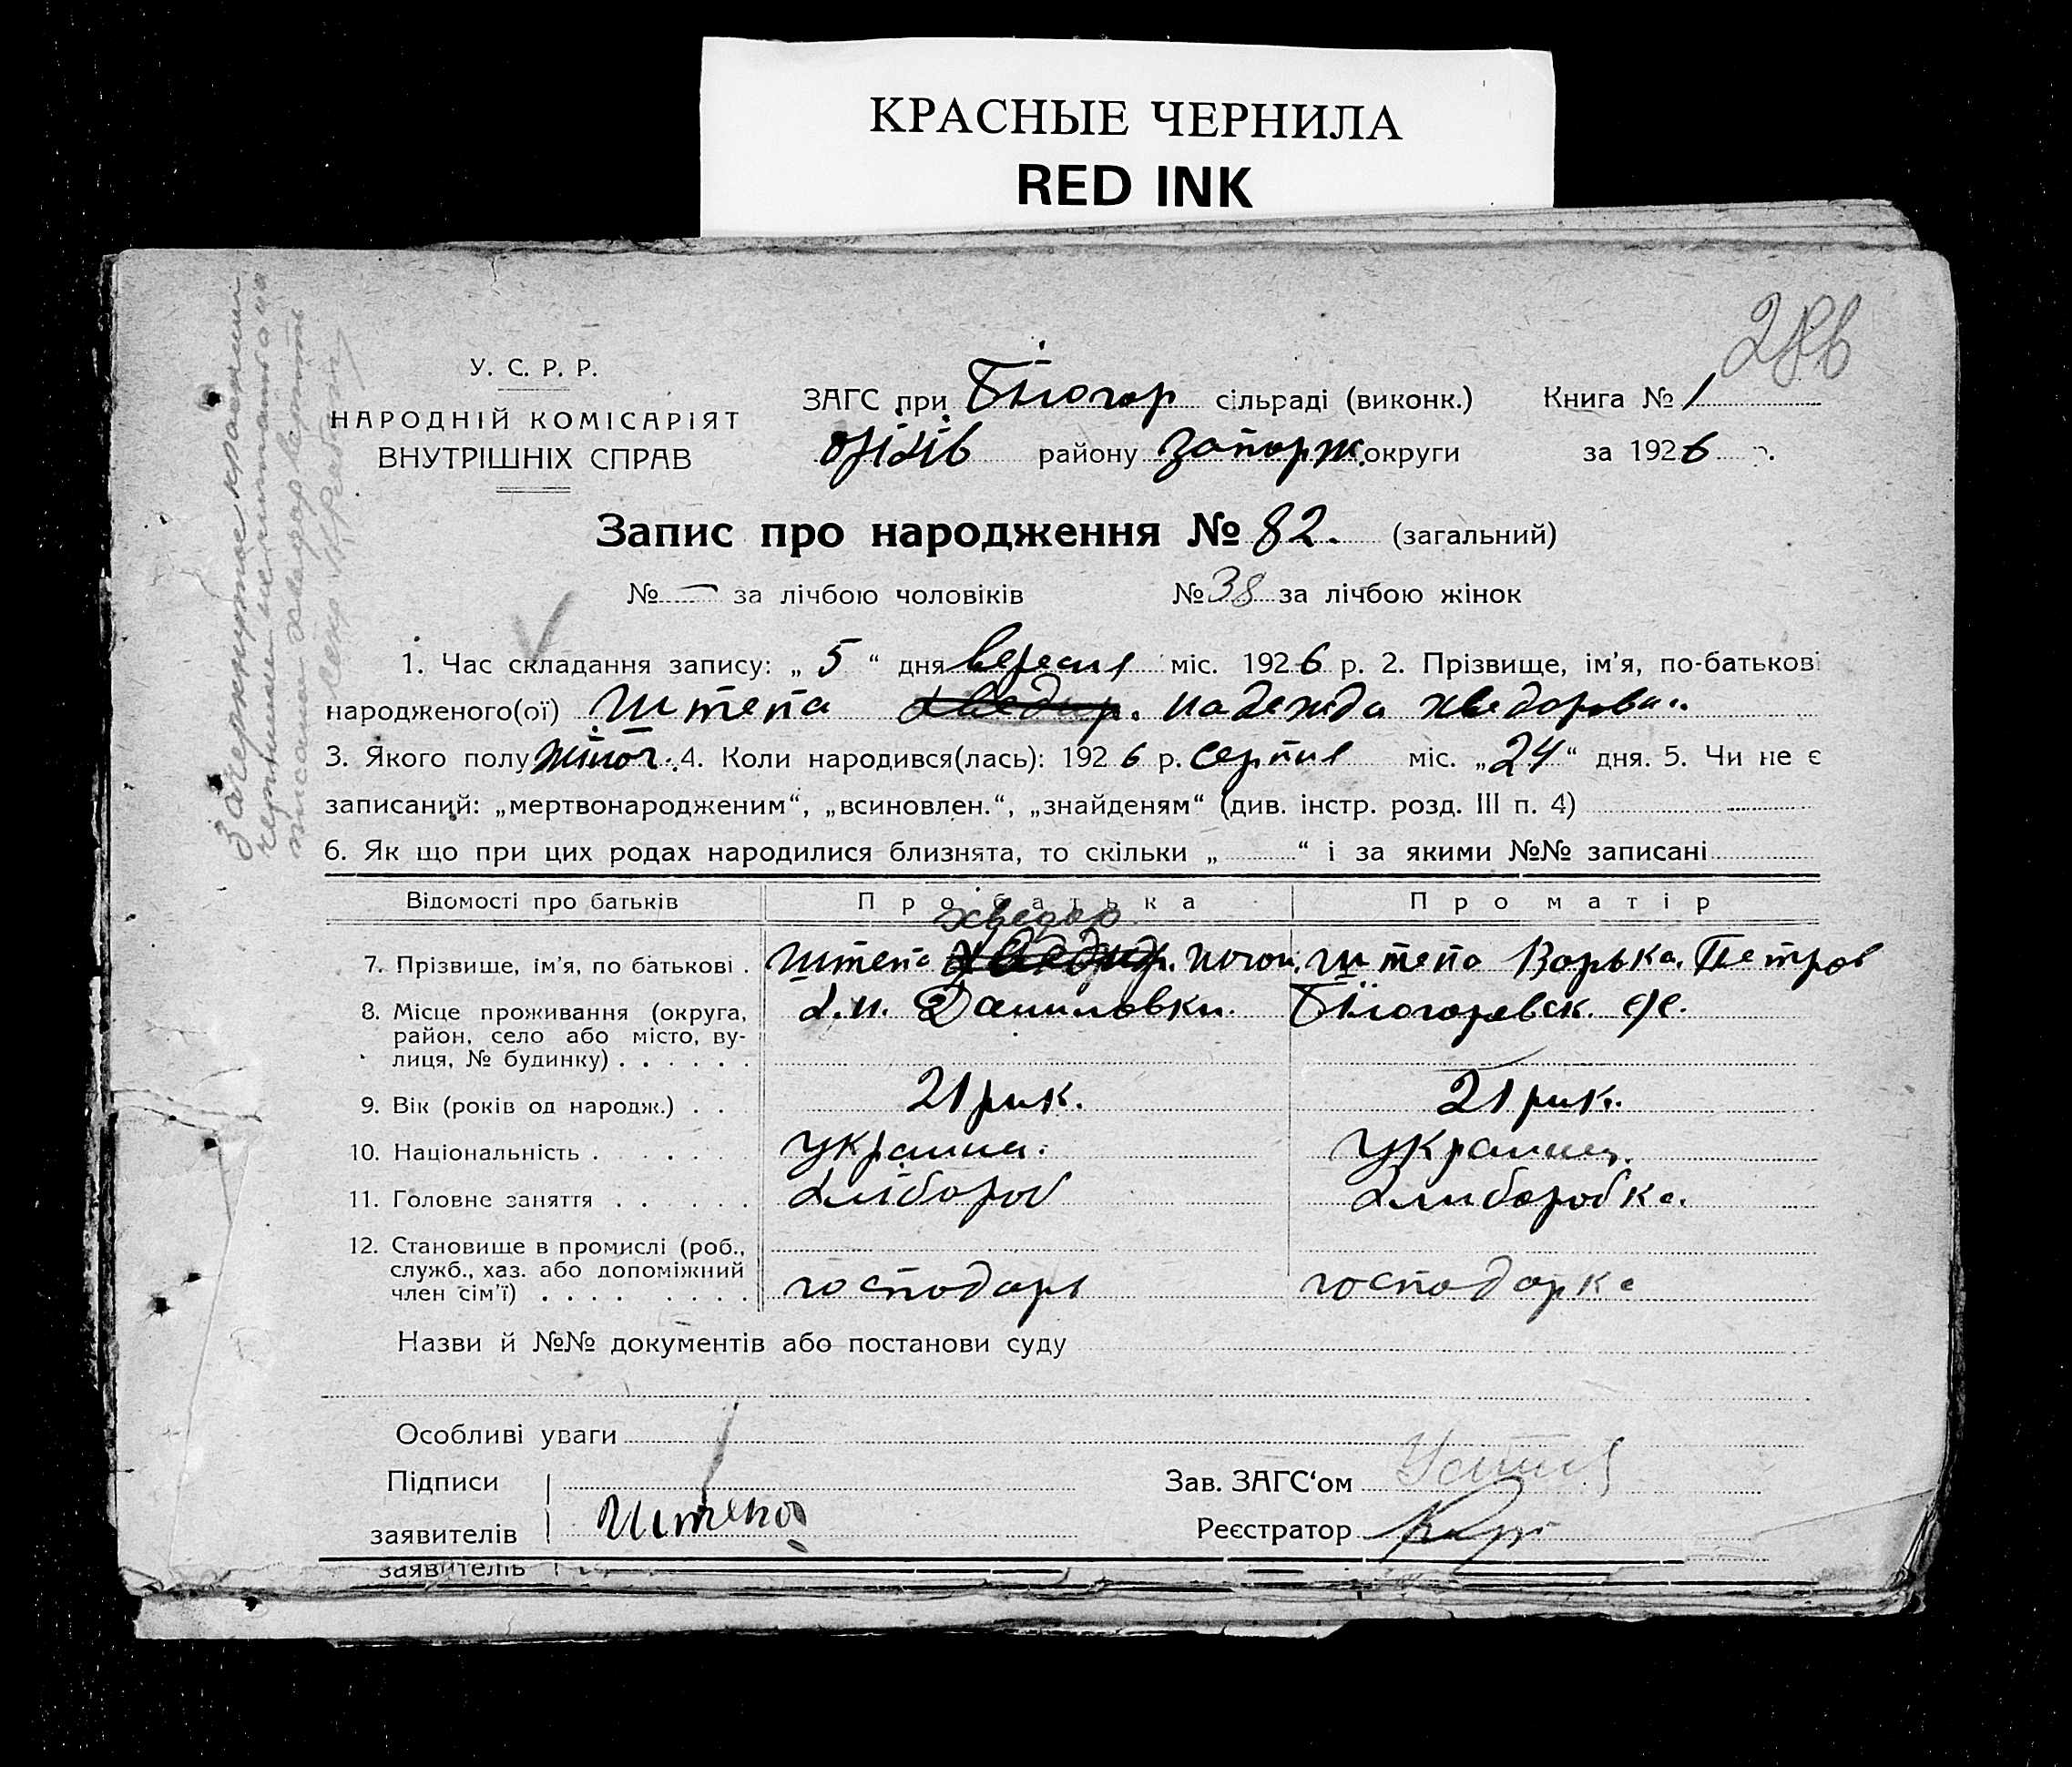 КРАСНЫЕ ЧЕРНИЛА
RED INK
У. С. Р. Р.
НАРОДНІЙ КОМІСАРІЯТ
ВНУТРІШНІХ СПРАВ
ЗАГС при Білогор сільраді (виконк.) Книга № 1
оріхів району запорж. округи за 1926 р.
Запис про народження № 82. (загальний)
№ — за лічбою чоловіків № 38 за лічбою жінок
1. Час складання запису: „ 5 “ дня вересня міс. 1926 р. 2. Прізвище, ім’я, по-батькові
народженого(ої) Штепа надежда хведоровн.
3. Якого полу жіноч. 4. Коли народився(лась): 1926 р. серпня міс. „24“ дня. 5. Чи не є
записаний: „мертвонародженим“, „всиновлен.“, „знайденям“ (див. інстр. розд. III п. 4)
6. Як що при цих родах народилися близнята, то скільки „ “ і за якими №№ записані
Відомості про батьків Про батька Про матір
хведор
7. Прізвище, ім’я, по батькові . Штепа Штепа Варька. Петров
8. Місце проживання (округа, район, село або місто, вулиця, № будинку) . . . . . Х.п. Даниловки.
9. Вік (років од народж.) . . 21 рик. 21 рик.
10. Національність . украина. украинц.
11. Головне заняття . . хлібороб хлиборобка.
12. Становище в промислі (роб., служб., хаз. або допоміжний член сім’ї) . . . . господарь господарка
Назви й №№ документів або постанови суду
Особливі уваги
Підписи
заявителів Штепа
Зав. ЗАГС‘ом
Реєстратор
заявитель
Зачеркнутое красными
чернилами не читать а на
писаному хведор верить